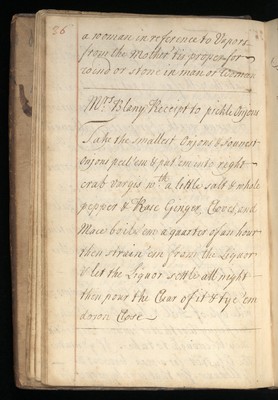 86
a woman in reference to Vapors
from the Mother tis proper for
wind or stone in man or woman
Mrs Blany Receipt to pickle Onjons
Take the smallest Onjons &
Onjons peel em & put em into right
crab vargis wth a little salt & whole
pepper & Rase Ginger, Cloves, and
Mace boile em a quarter of an hour
then strain em from the Liquor
& let the Liquor settle all night
then pour the Clear of it & tye em
down Close